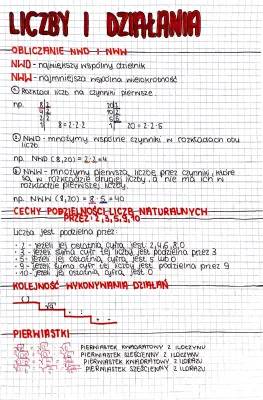 LICZBY I DZIAŁANIA
OBLICZANIE NWD I NWW
NWD - największy wspólny dzielnik
NWW - najmniejsza wspólna wielokrotność
1. Rozkład liczb na czynniki pierwsze.
np.
8 = 2·2·2
20 = 2·2·5
2. NWD - mnożymy wspólne czynniki w rozkładach obu
liczb.
np. NWD (8,20) = 2·2=4
3. NWW - mnożymy pierwszą liczbę przez czynniki, które
są w rozkładzie drugiej liczby, a nie ma ich w
rozkładzie pierwszej liczby.
np. NWW (8,20) = 8·5=40
CECHY PODZIELNOŚCI LICZB NATURALNYCH
PRZEZ: 2,3,5,9,10
Liczba jest podzielna przez:
2 - jeżeli jej ostatnią cyfrą jest 2,4,6,8,0
3 - jeżeli suma cyfr tej liczby jest podzielna przez 3
5 - jeżeli jej ostatnią cyfrą jest 5 lub 0
9 - jeżeli suma cyfr tej liczby jest podzielna przez 9
10 - jeżeli jej ostatnią cyfrą jest 0
KOLEJNOŚĆ WYKONYWANIA DZIAŁAŃ
( )
PIERWIASTKI
PIERWIASTEK KWADRATOWY Z ILOCZYNU
PIERWIASTEK SZEŚCIENNY Z ILOCZYNU
PIERWIASTEK KWADRATOWY Z ILORAZU
PIERWIASTEK SZEŚCIENNY Z ILORAZU